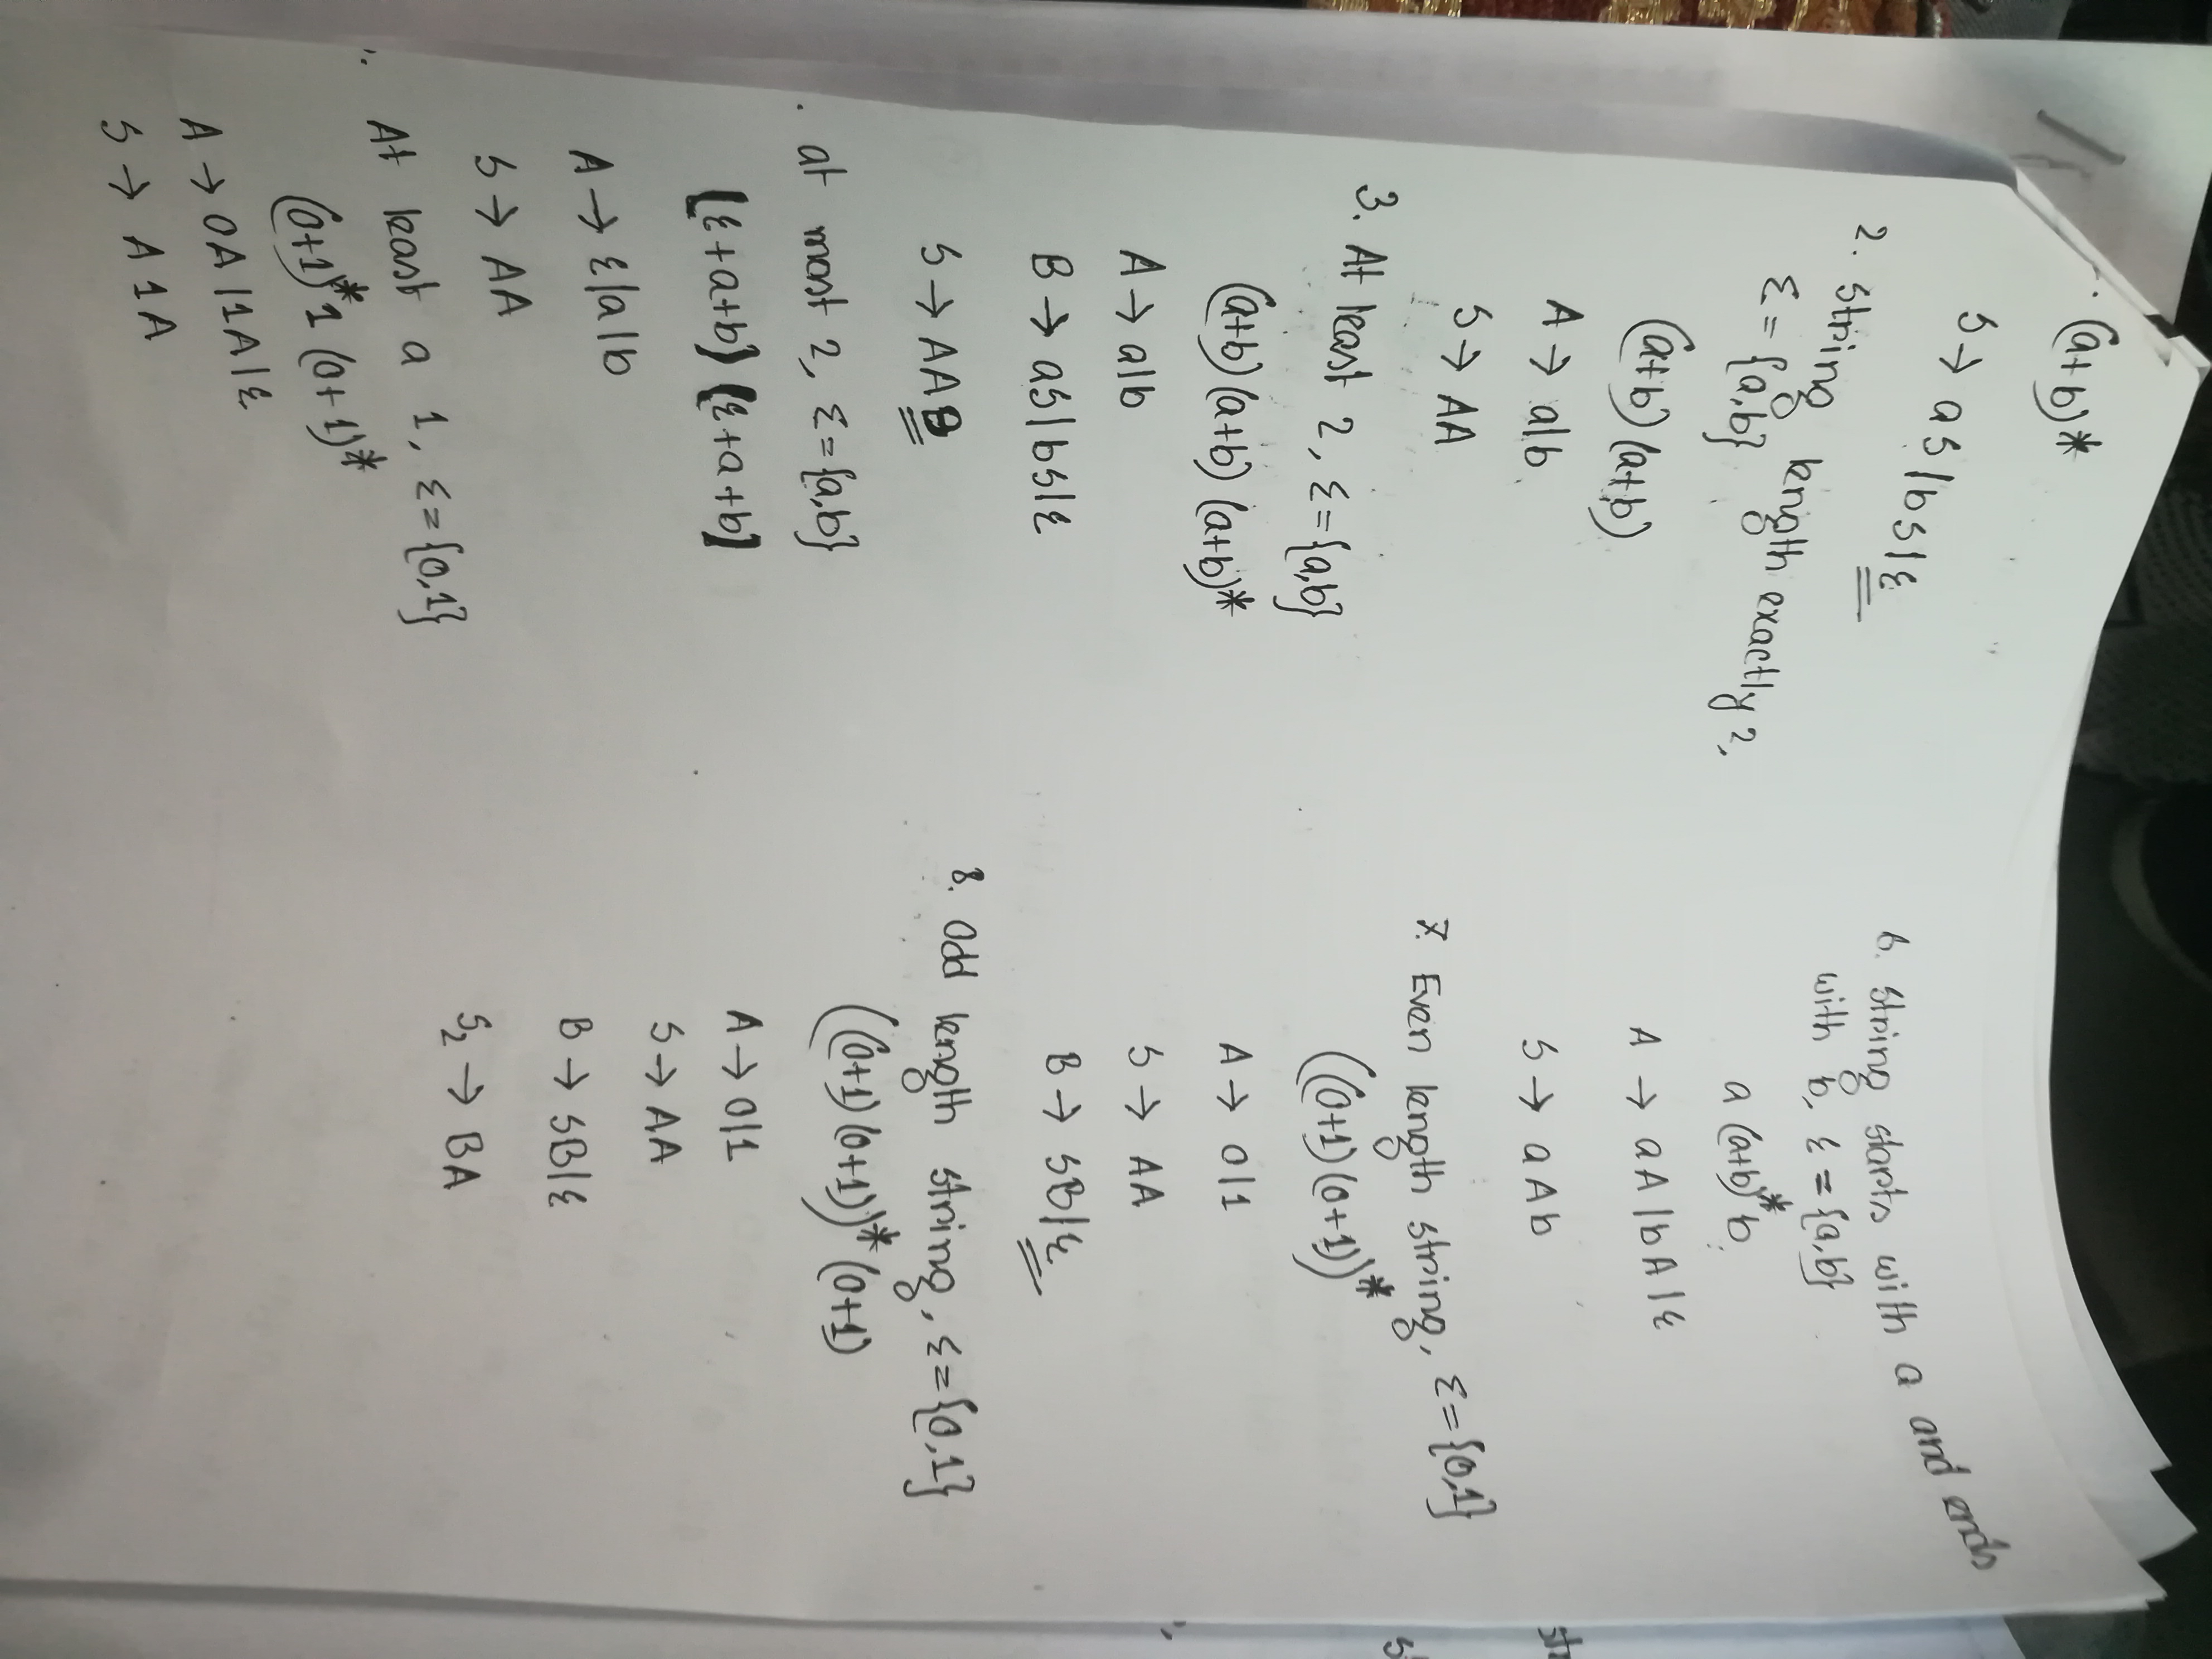 (a+b)*
S → aS|bS|ε
2. String length exactly 2,
Ɛ = {a,b}
(a+b)(a+b)
A → a|b
S → AA
3. At least 2, Ɛ={a,b}
(a+b)(a+b)(a+b)*
A → a|b
B → aS|bS|ε
S → AAB
. at most 2, Ɛ={a,b}
(ε+a+b)(ε+a+b)
A → ε|a|b
S → AA
. At least a 1, Ɛ={0,1}
(0+1)*1(0+1)*
A → 0A|1A|ε
S → A1A
6. String starts with a and ends
with b, Ɛ={a,b}
a(a+b)*b
A → aA|bA|ε
S → aAb
7. Even length string, Ɛ={0,1}
((0+1)(0+1))*
A → 0|1
S → AA
B → SB|ε
8. Odd length string, Ɛ={0,1}
((0+1)(0+1))*(0+1)
A → 0|1
S → AA
B → SB|ε
S₂ → BA